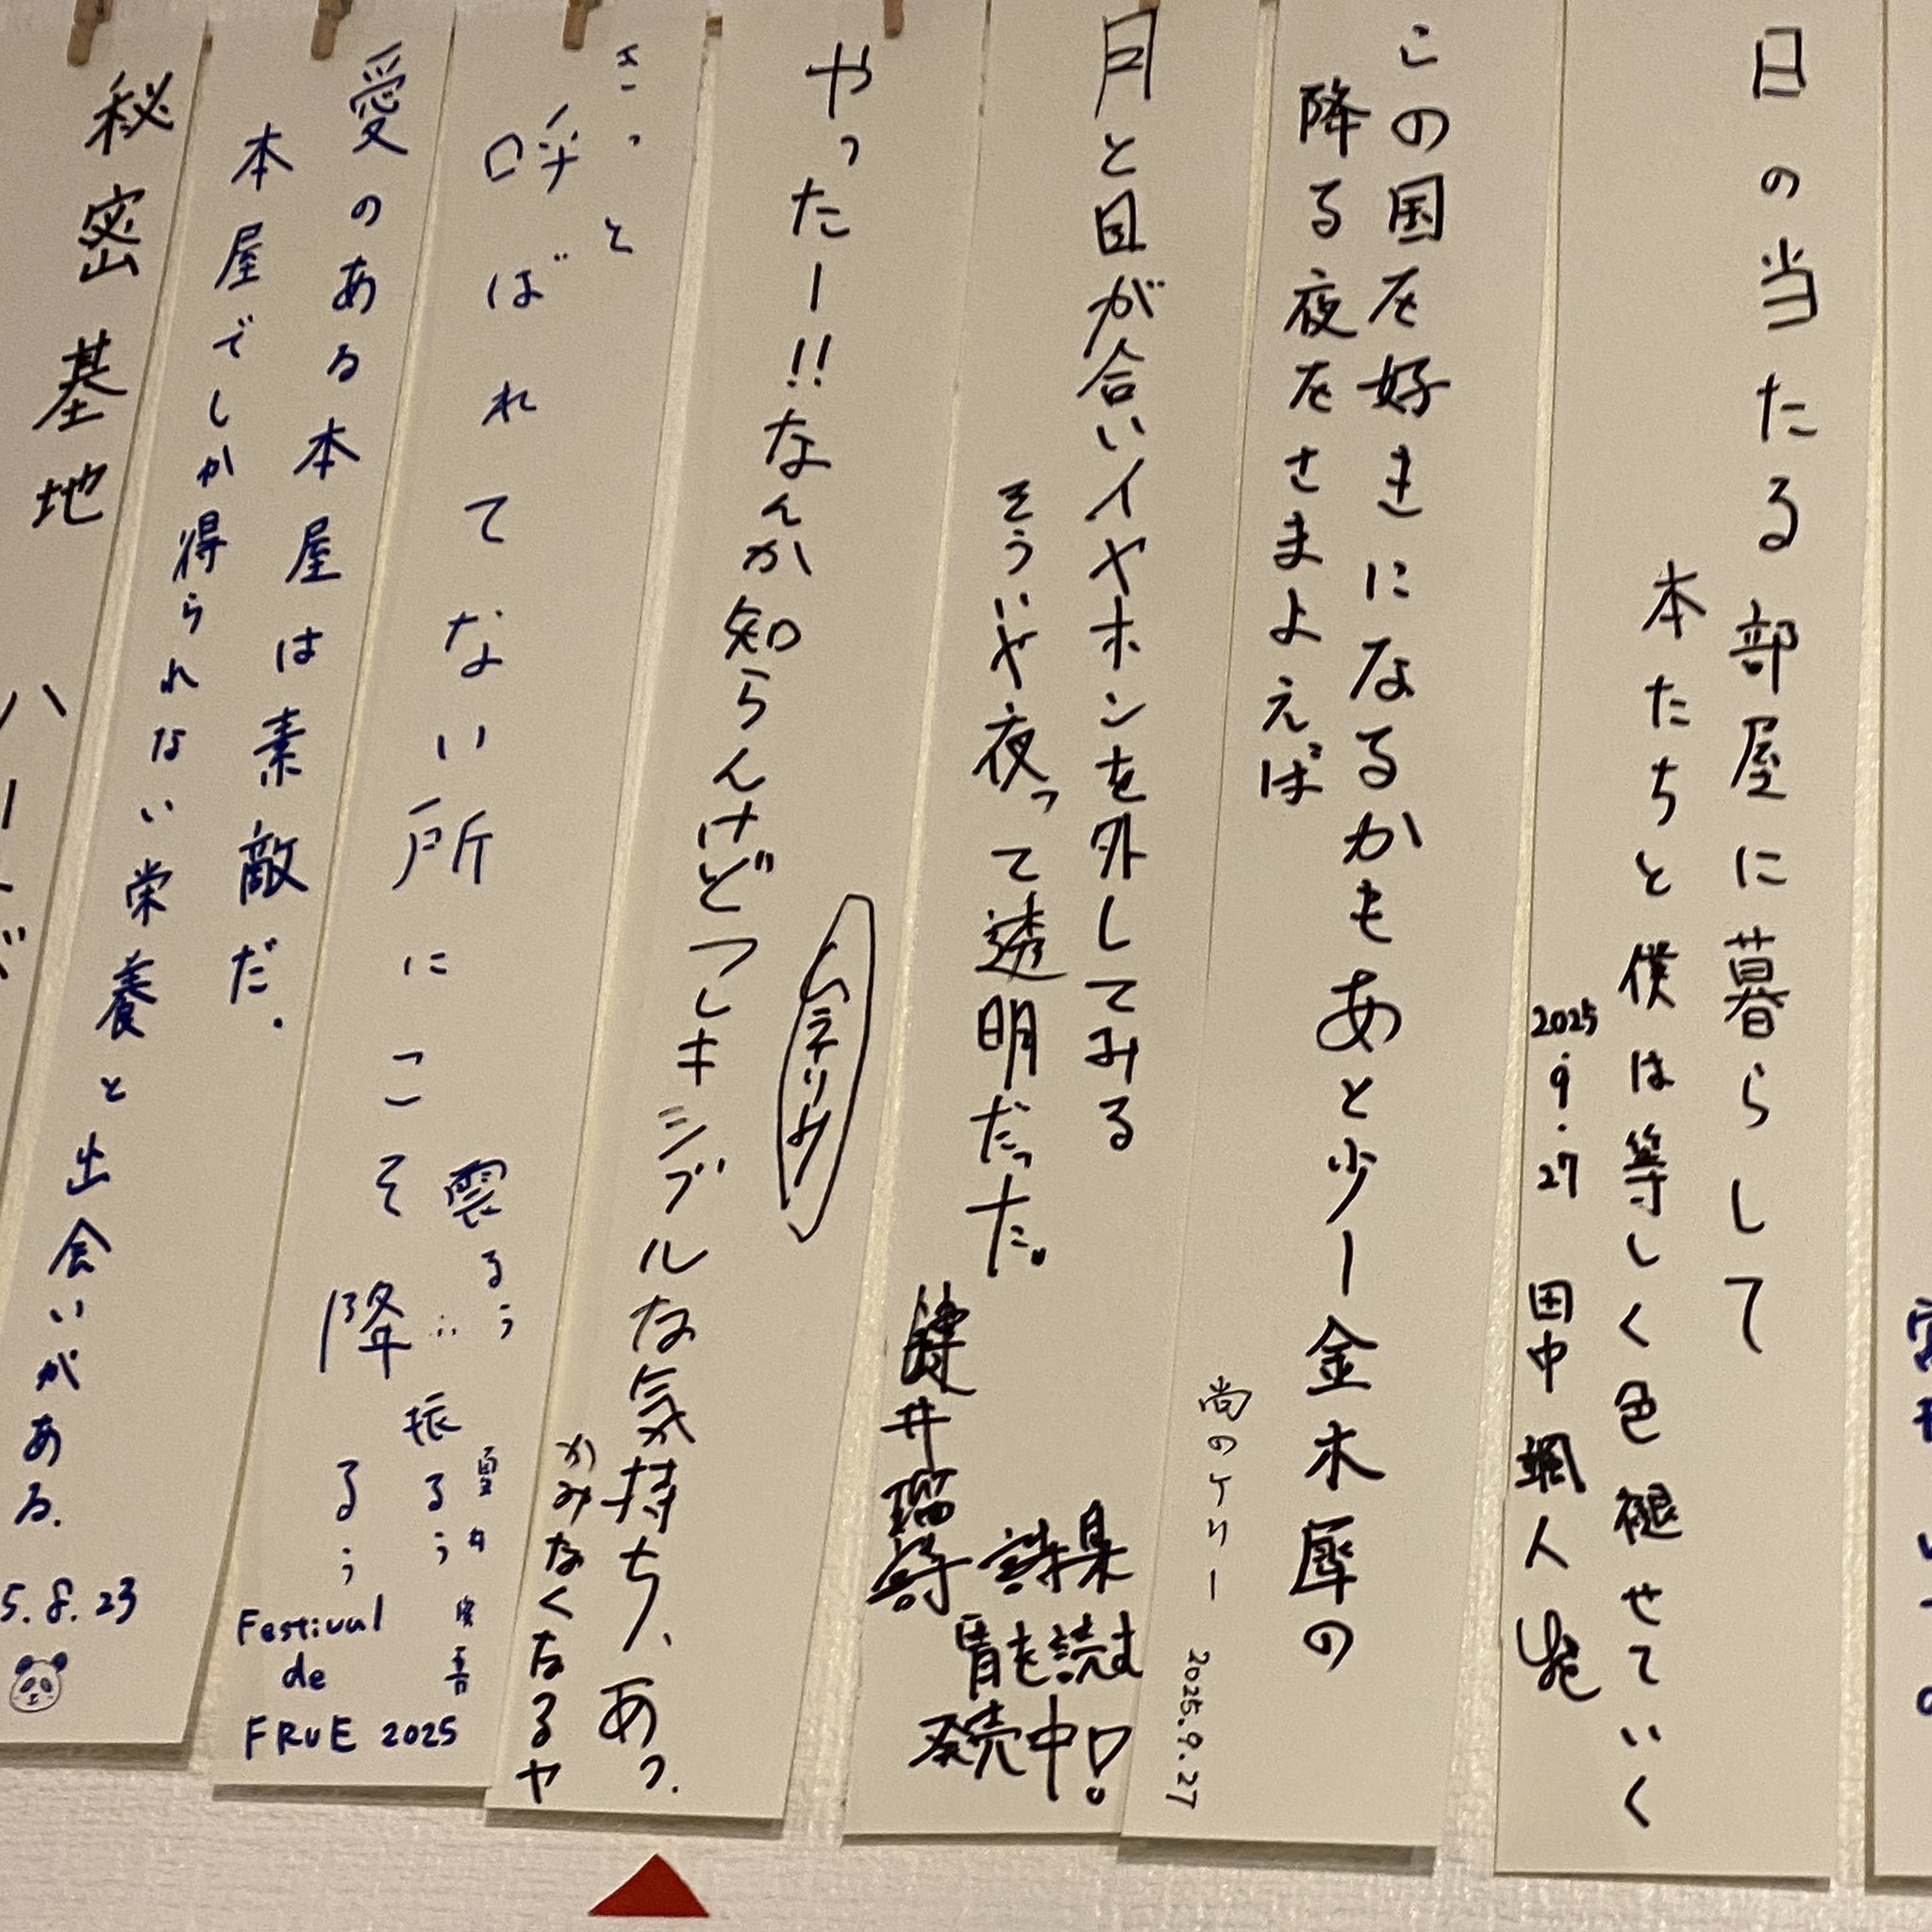 日の当たる部屋に暮らして
本たちと僕は等しく色褪せていく
2025.9.27 田中颯人
この国を好きになるかもあと少ー金木犀の
降る夜をさまよえば
尚のケリー 2025.9.27
月と目が合いイヤホンを外してみる
そういや夜って透明だった。
鍵井瑠詩
詩集
胃も読む
発売中!
やったー!!なんか知らんけどフレキシブルな気持ち、あっ.
かみなくなるヤ
きっと
呼ばれてない所にこそ降るう
震るう
振るう
Festival
de
FRUE 2025
愛のある本屋は素敵だ.
本屋でしか得られない栄養と出会いがある.
5.8.23
秘密基地